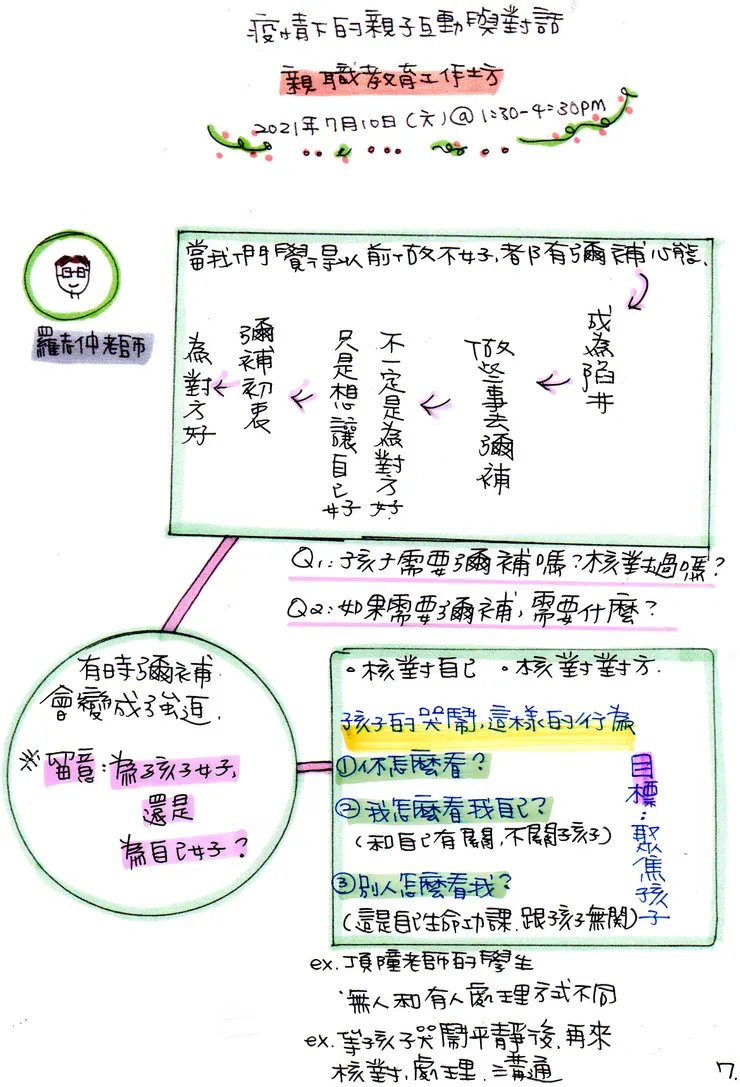 疫情下的親子互動與對話
親職教育工作坊
2021年7月10日(六)@1:30-4:30pm
羅志仲老師
當我們覺得以前做不好,都有彌補心態.
成為陷井
做些事去彌補
不一定是為對方好
只是想讓自己好
彌補初衷
為對方好
Q1:孩子需要彌補嗎?核對過嗎?
Q2:如果需要彌補,需要什麼?
有時彌補
會變成強迫.
※留意:為孩子好,
還是
為自己好?
。核對自己 。核對對方.
孩子的哭鬧,這樣的行為
①你怎麼看?
②我怎麼看我自己?
(和自己有關,不關孩子)
③別人怎麼看我?
(這是自己生命功課.跟孩子無關)
目標:聚焦孩子
ex.頂撞老師的學生
無人和有人處理方式不同
ex.等孩子哭鬧平靜後.再來
核對,處理.溝通
7.